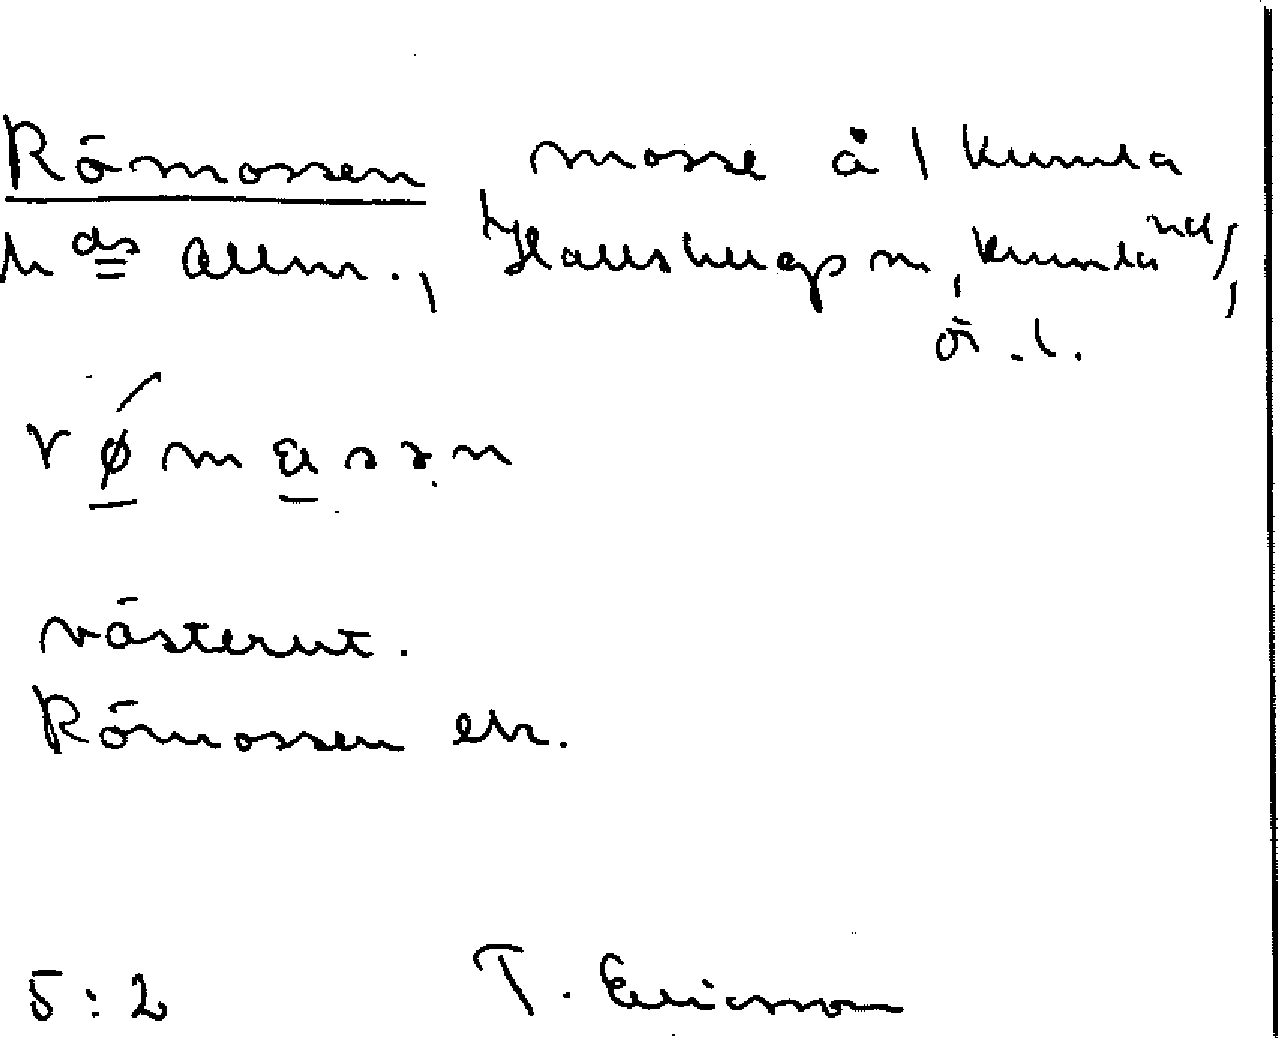 Römossen mosse å Kumla
hds Allm., Hallsbergs sn, Kumla hd,
Ö.l.
västerut.
Römossen ek.
5:2 T. Ericsson